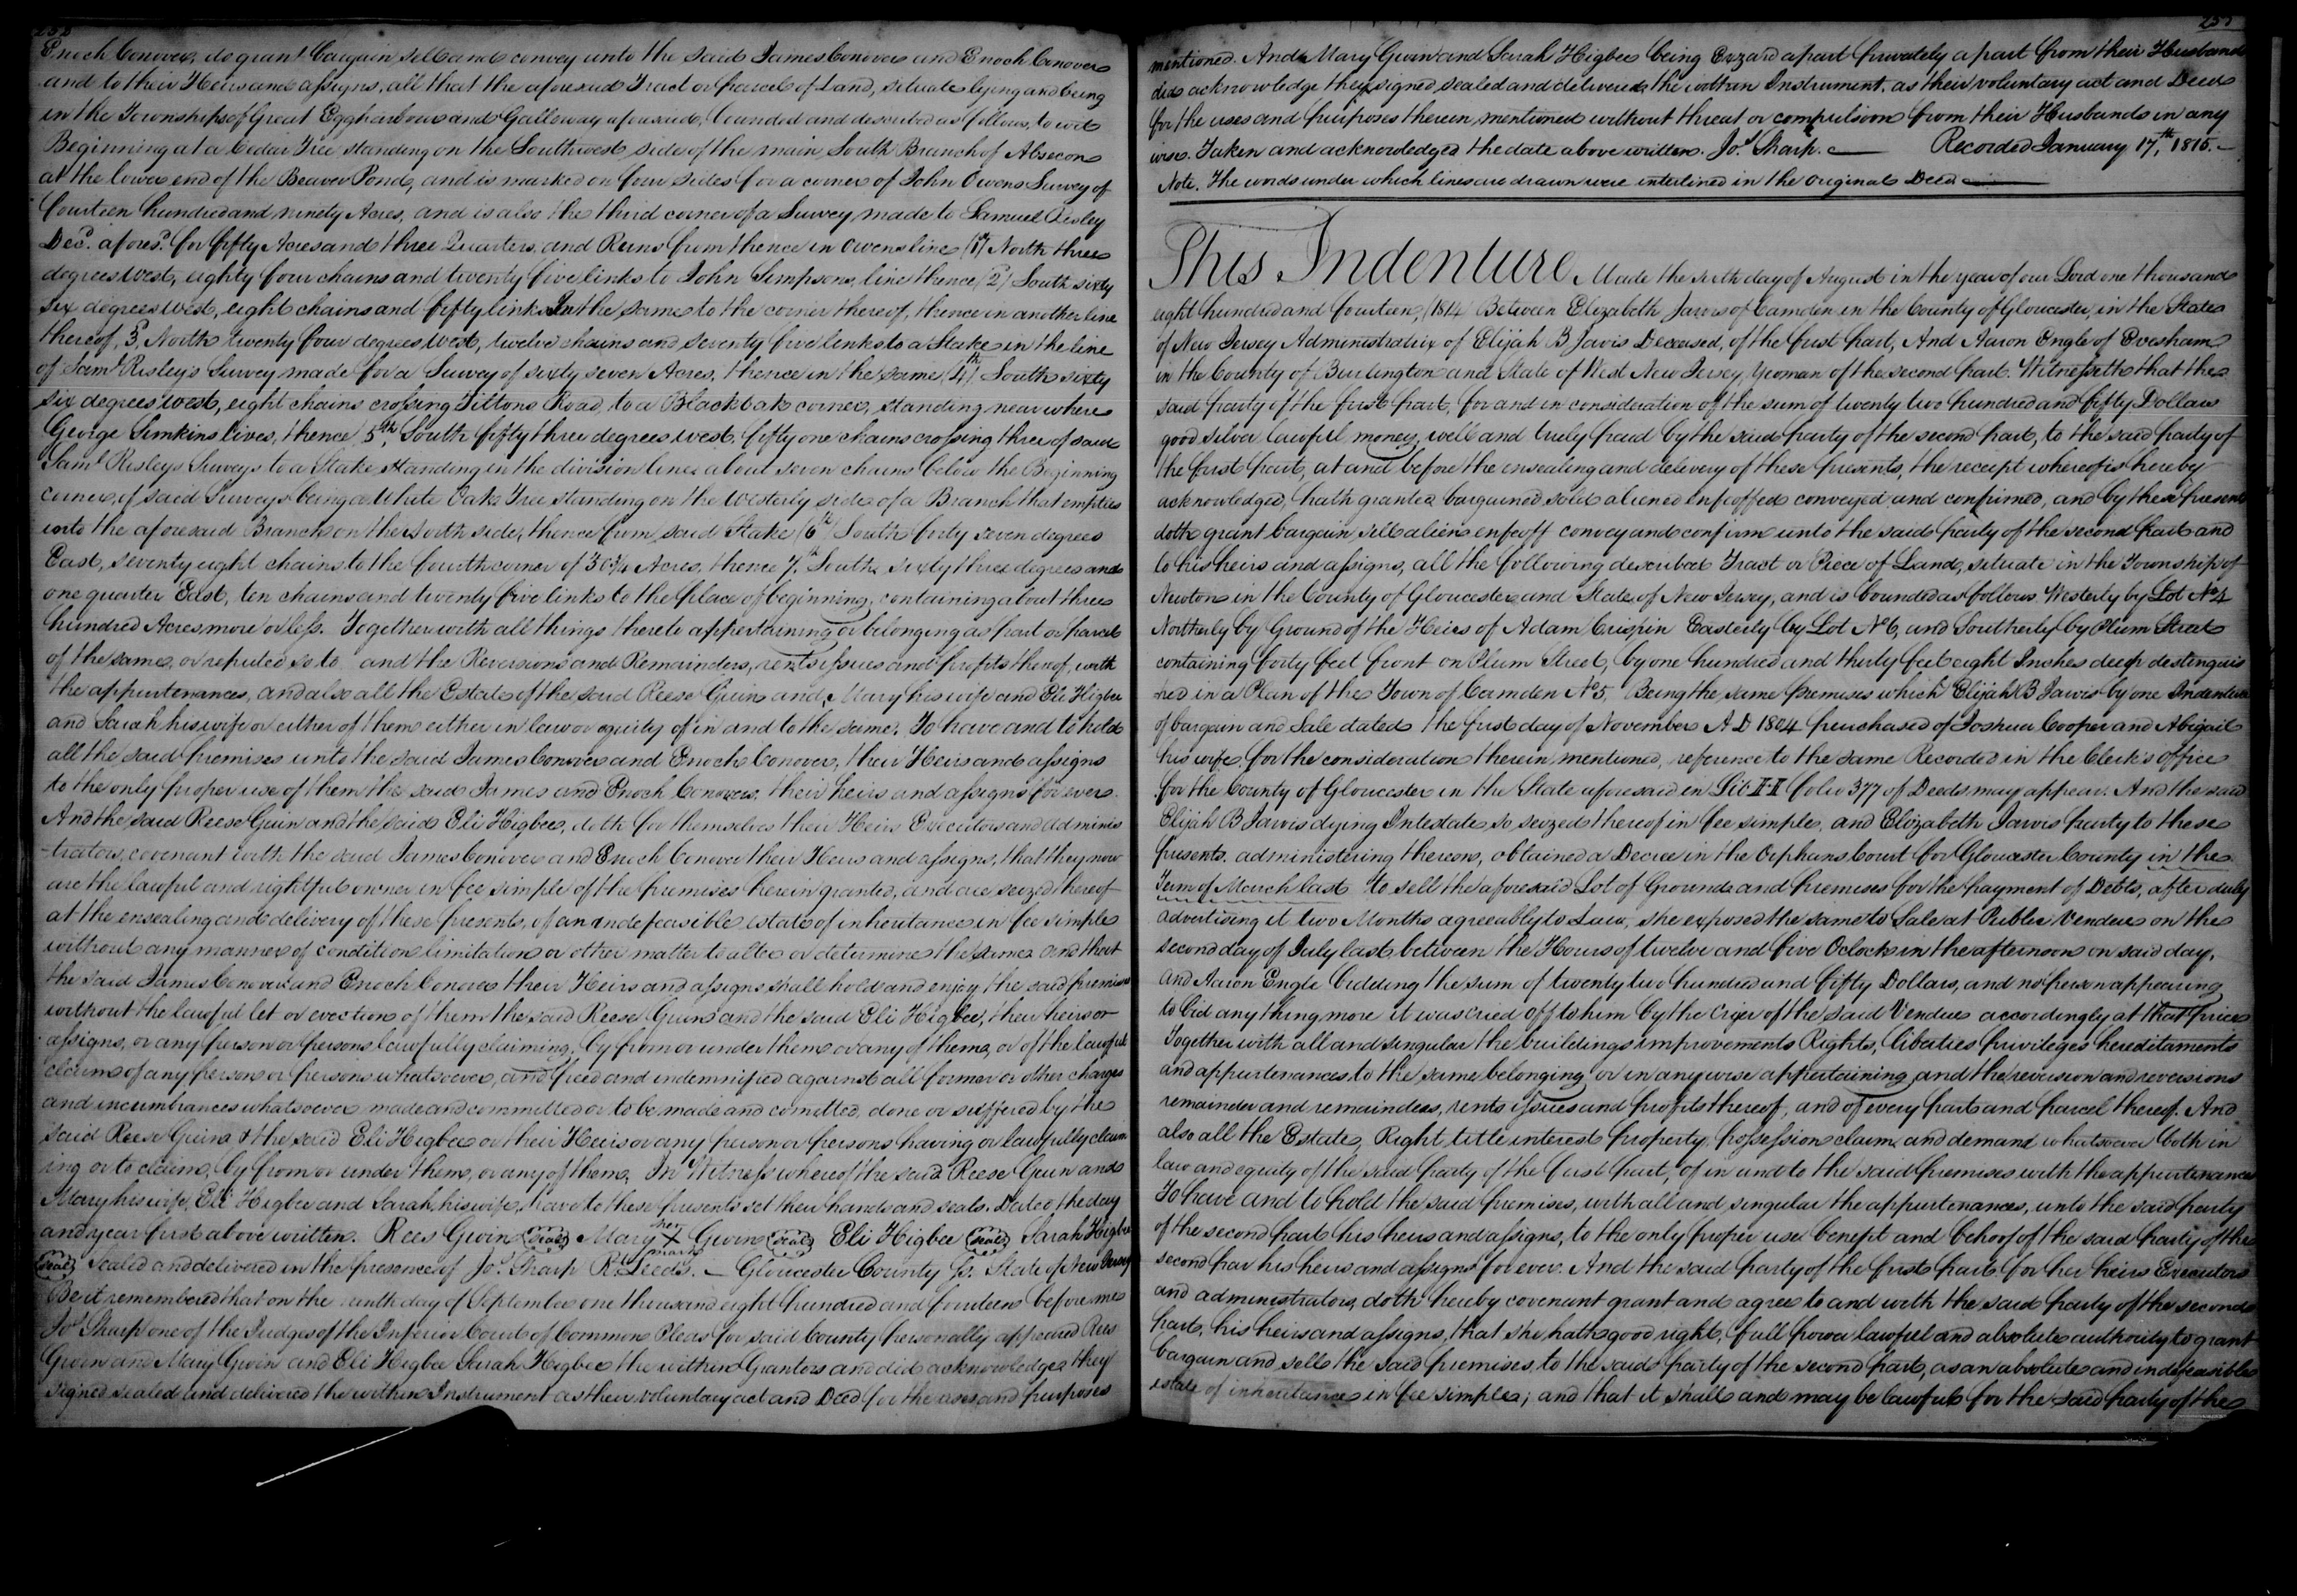 Enoch Conover, do grant bargain sell and convey unto the said James Conover and Enoch Conover
and to their Heirs and assigns, all that the aforesaid Tract or parcel of Land, situate lying and being
in the Townships of Great Eggharbour and Galloway aforesaid, bounded and described as follows, to wit
Beginning at a Cedar Tree standing on the Southwest side of the main South Branch of Absecon
at the lower end of the Beaver Pond, and is marked on four sides for a corner of John Owens Survey of
fourteen hundred and ninety Acres, and is also the third corner of a Survey made to Samuel Risley
Decd. afores.d for fifty Acres and three Quarters, and Runs from thence in Owens line (1st) North three
degrees West, eighty four chains and twenty five links to John Simpsons line thence (2d) South sixty
six degrees West, eight chains and fifty links In the same to the corner thereof, thence in another line
thereof, 3d, North twenty four degrees West, twelve chains and seventy five links to a Stake in the line
of Saml Risley's Survey made for a Survey of sixty seven Acres, thence in the same (4th) South sixty
six degrees West, eight chains crossing Tiltons Road, to a Black oak corner, standing near where
George Simkins lives, thence 5th, South fifty three degrees west, fifty one chains crossing three of said
Saml Risleys Surveys to a Stake standing in the division line about seven chains below the Beginning
corner, of said Surveys being a White Oak Tree standing on the Westerly side of a Branch that empties
into the aforesaid Branch on the South side, thence from said Stake (6th) South forty seven degrees
East, seventy eight chains to the fourth corner of 30¾ Acres, thence 7th South sixty three degrees and
one quarter East, ten chains and twenty five links to the place of beginning, containing about three
hundred Acres more or less. Together with all things thereto appertaining or belonging as part or parcel
of the same, or reputed so to and the Reversions and Remainders, rents issues and profits thereof, with
the appurtenances, and also all the Estate of the said Reese Guin and Mary his wife and Eli Higbee
and Sarah his wife or either of them either in law or equity of in and to the same. To have and to hold
all the said premises unto the said James Conover and Enoch Conover, their Heirs and assigns
to the only proper use of them the said James and Enoch Conover, their heirs and assigns for ever.
And the said Reese Guin and the said Eli Higbee, doth for themselves their Heirs Executors and adminis
-trators, covenant with the said James Conover and Enoch Conover their Heirs and assigns, that they now
are the lawful and rightful owner in fee simple of the premises herein granted, and are seized thereof
at the ensealing and delivery of these presents, of an indefeasible estate of inheritance in fee simple
without any manner of condition limitation or other matter to alter or determine the same and that
the said James Conover and Enoch Conover their Heirs and assigns shall hold and enjoy the said premises
without the lawful let or eviction of them the said Reese Guin and the said Eli Higbee, their heirs or
assigns, or any person or persons lawfully claiming, by from or under them or any of them, or of the lawful
claim of any person or persons whatsoever, and freed and indemnified against all former or other charges
and incumbrances whatsoever made and committed or to be made and comitted, done or suffered by the
said Reese Guin & the said Eli Higbee or their Heirs or any person or persons having or lawfully claim
ing or to claim, by from or under them, or any of them. In Witness whereof the said Reese Guin and
Mary his wife, Eli Higbee and Sarah his wife, have to these presents set their hands and seals. Dated the day
and year first above written. Rees Gwin (seal) Mary her X mark Gwin (seal) Eli Higbee (seal) Sarah Higbee
(seal) Sealed and delivered in the presence of Jos. Sharp Rd. Leeds. — Gloucester County Ss. State of New Jersey
Be it remembered that on the ninth day of September one thousand eight hundred and fourteen before me
Jos. Sharp one of the Judges of the Inferior Court of Common Pleas for said County personally appeared Rees
Gwin and Mary Gwin and Eli Higbee Sarah Higbee the within Grantors and did acknowledge they
signed sealed and delivered the within Instrument as their voluntary act and Deed for the uses and purposes
mentioned. And Mary Gwin and Sarah Higbee being Exzamd apart privately apart from their Husband
did acknowledge they signed sealed and delivered the within Instrument, as their voluntary act and Deed
for the uses and purposes therein mentioned without threat or compulsion from their Husbands in any
wise. Taken and acknowledged the date above written. Jos. Sharp. — Recorded January 17th, 1815. —
Note. The words under which lines are drawn were interlined in the original Deed —
This Indenture Made the sixth day of August in the year of our Lord one thousand
eight hundred and fourteen, (1814) Between Elizabeth Jarvis of Camden in the County of Gloucester, in the State
of New Jersey Administratrix of Elijah B Jarvis Deceased, of the first part, And Aaron Engle of Evesham
in the County of Burlington and State of West New Jersey, Yeoman of the second part. Witnesseth that the
said party of the first part, for and in consideration of the sum of twenty two hundred and fifty Dollars
good silver lawful money, well and truly paid by the said party of the second part, to the said party of
the first part, at and before the ensealing and delivery of these presents, the receipt whereof is hereby
acknowledged, hath granted bargained sold aliened enfeoffed conveyed and confirmed, and by these presents
doth grant bargain sell alien enfeoff convey and confirm unto the said party of the second part and
to his heirs and assigns, all the following described Tract or Piece of Land, situate in the Township of
Newton in the County of Gloucester and State of New Jersey, and is bounded as follows. Westerly by Lot No 4
Northerly by Ground of the Heirs of Adam Crispin Easterly by Lot No 6, and Southerly by Plum Street
containing forty feet front on Plum Street, by one hundred and thirty feet eight Inches deep destinguis
hed in a Plan of the Town of Camden No 5, Being the same premises which Elijah B Jarvis by one Indenture
of bargain and Sale dated the first day of November A D 1804 purchased of Joshua Cooper and Abigail
his wife, for the consideration therein mentioned, reference to the same Recorded in the Clerk's office
for the County of Gloucester in the State aforesaid in Lib II folio 377 of Deeds may appear. And the said
Elijah B Jarvis dying Intestate so seized thereof in fee simple, and Elizabeth Jarvis party to these
presents, administering thereon, obtained a Decree in the Orphans Court for Gloucester County in the
Term of March last to sell the aforesaid Lot of Ground and premises for the payment of Debts, after duly
advertising it two Months agreeably to Law, she exposed the same to Sale at Public Vendue on the
second day of July last, between the Hours of twelve and five Oclock in the afternoon on said day,
and Aaron Engle bidding the sum of twenty two hundred and fifty Dollars, and no person appearing
to bid any thing more it was cried off to him by the Cryer of the said Vendue accordingly at that price
Together with all and singular the buildings improvements Rights, liberties privileges hereditaments
and appurtenances to the same belonging or in any wise appertaining and the reversion and reversions
remainder and remainders, rents issues and profits thereof, and of every part and parcel thereof. And
also all the Estate, Right title interest property, possession claim and demand whatsoever both in
law and equity of the said party of the first part, of in and to the said premises with the appurtenances
To have and to hold the said premises, with all and singular the appurtenances, unto the said party
of the second part his heirs and assigns, to the only proper use benefit and behoof of the said party of the
second par his heirs and assigns for ever. And the said party of the first part for her heirs Executors
and administrators, doth hereby covenant grant and agree to and with the said party of the second
part, his heirs and assigns, that she hath good right, full power lawful and absolute authority to grant
bargain and sell the said premises, to the said party of the second part, as an absolute and indefeasible
estate of inheritance in fee simple; and that it shall and may be lawful for the said party of the